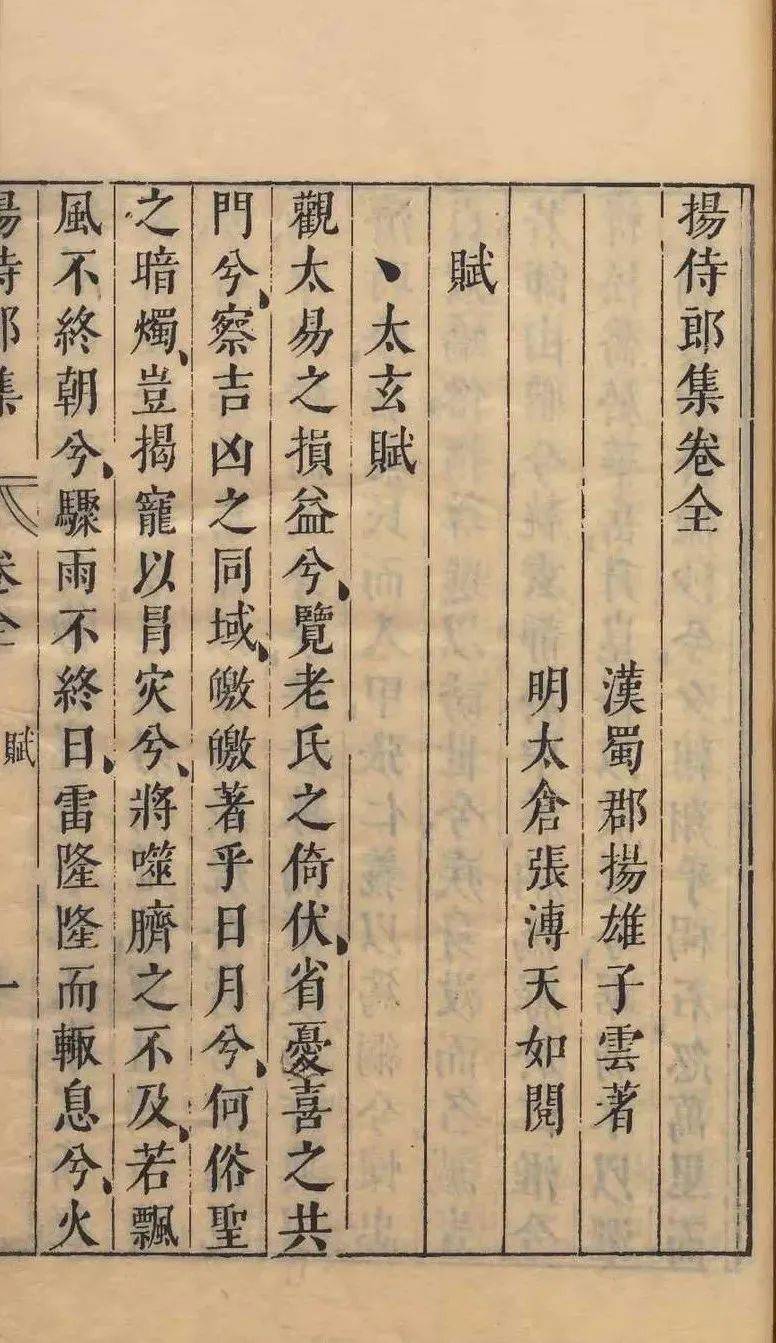 揚侍郎集卷全
漢蜀郡揚雄子雲著
明太倉張溥天如閱
賦
太玄賦
觀太易之損益兮、覽老氏之倚伏、省憂喜之共
門兮、察吉凶之同域、皦皦著乎日月兮、何俗聖
之暗燭、豈揭寵以冐灾兮、將噬臍之不及、若飄
風不終朝兮、驟雨不終日、雷隆隆而輙息兮、火
揚侍郎集 卷全 賦 一